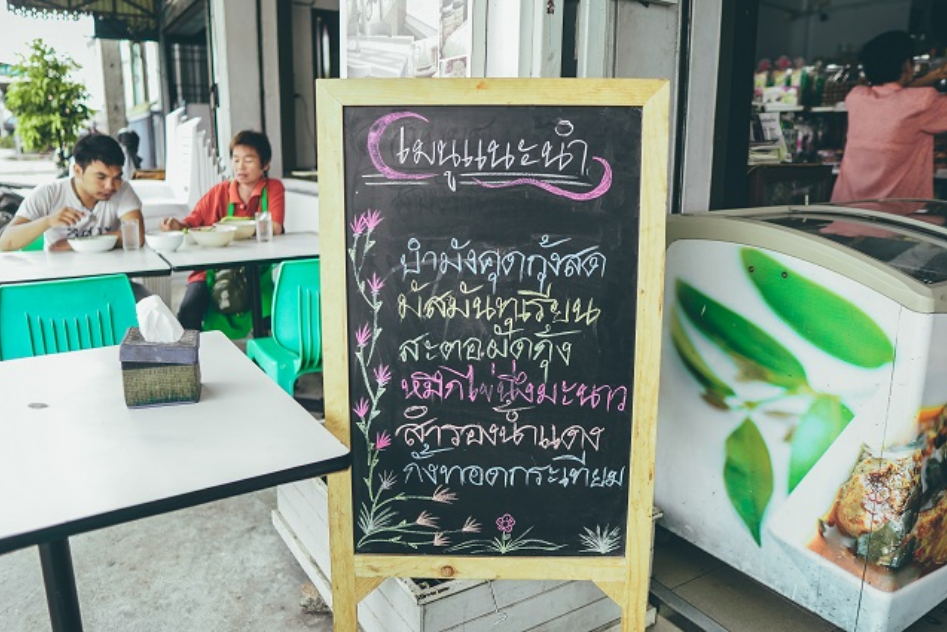 เมนูแนะนำ
ยำมังคุดกุ้งสด
มัสมันทุเรียน
สะตอผัดกุ้ง
หมึกไข่นึ่งมะนาว
สำรองน้ำแดง
กุ้งทอดกระเทียม